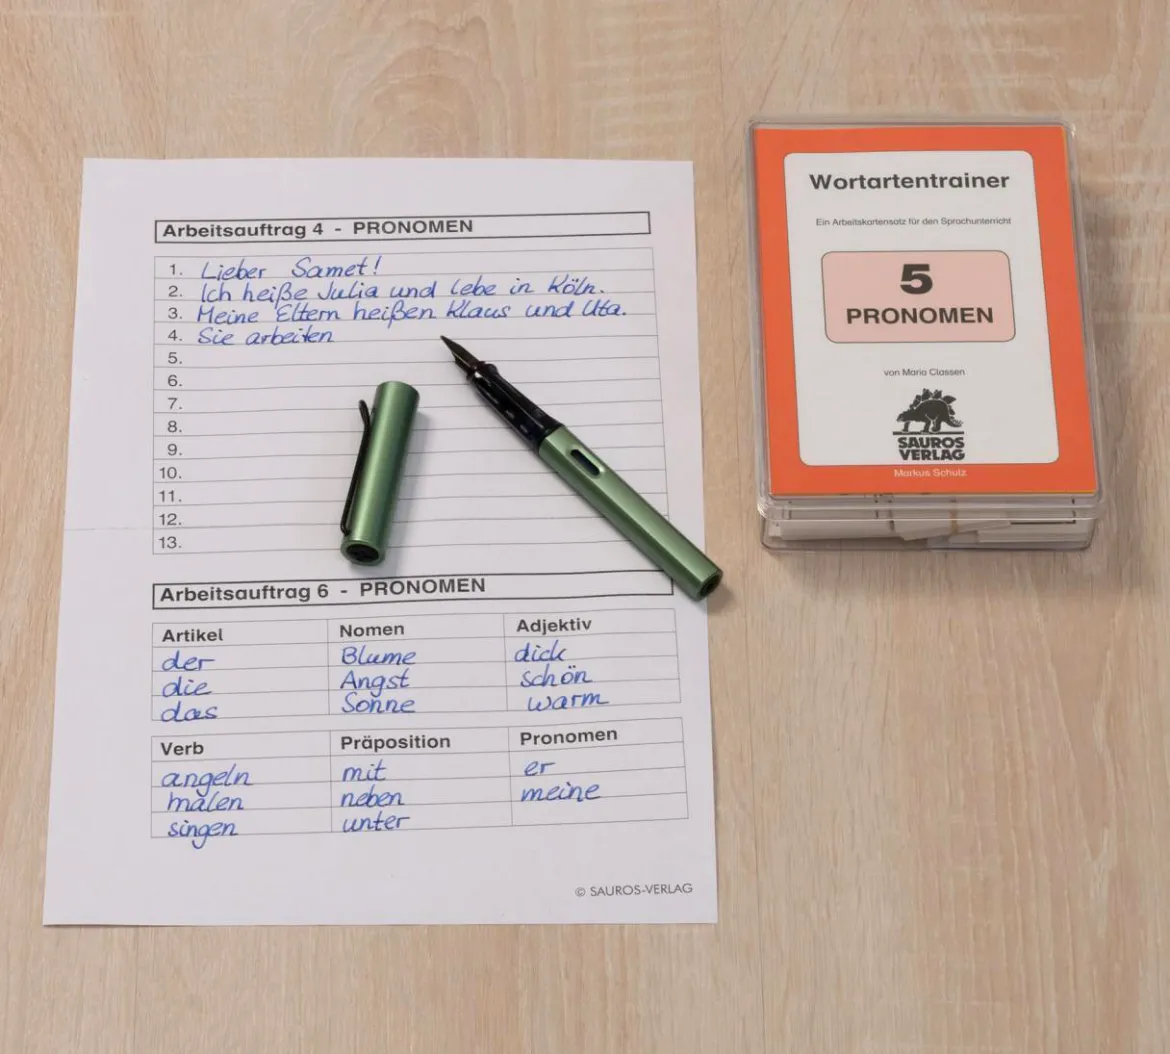 Arbeitsauftrag 4 - PRONOMEN
1. Lieber Samet!
2. Ich heiße Julia und lebe in Köln.
3. Meine Eltern heißen Klaus und Uta.
4. Sie arbeiten
5.
6.
7.
8.
9.
10.
11.
12.
13.
Arbeitsauftrag 6 - PRONOMEN
Artikel Nomen Adjektiv
der Blume dick
die Angst schön
das Sonne warm
Verb Präposition Pronomen
angeln mit er
malen neben meine
singen unter
© SAUROS-VERLAG
Wortartentrainer
Ein Arbeitskartensatz für den Sprachunterricht
5
PRONOMEN
von Maria Classen
SAUROS
VERLAG
Markus Schulz